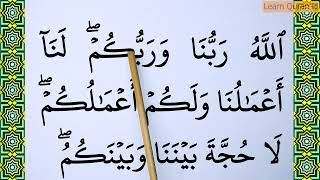 Learn Quran id
ٱللَّهُ رَبُّنَا وَرَبُّكُمۡۖ لَنَآ
أَعۡمَٰلُنَا وَلَكُمۡ أَعۡمَٰلُكُمۡۖ
لَا حُجَّةَ بَيۡنَنَا وَبَيۡنَكُمُۖ